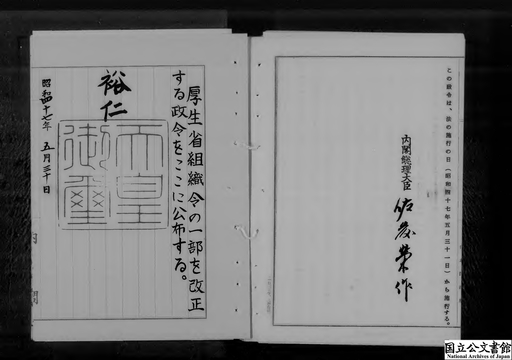 この政令は、法の施行の日（昭和四十七年五月三十一日）から施行する。
内閣総理大臣 佐藤榮作
厚生省組織令の一部を改正
する政令をここに公布する。
裕仁
天皇
御璽
昭和四十七年 五月三十日
国立公文書館
National Archives of Japan